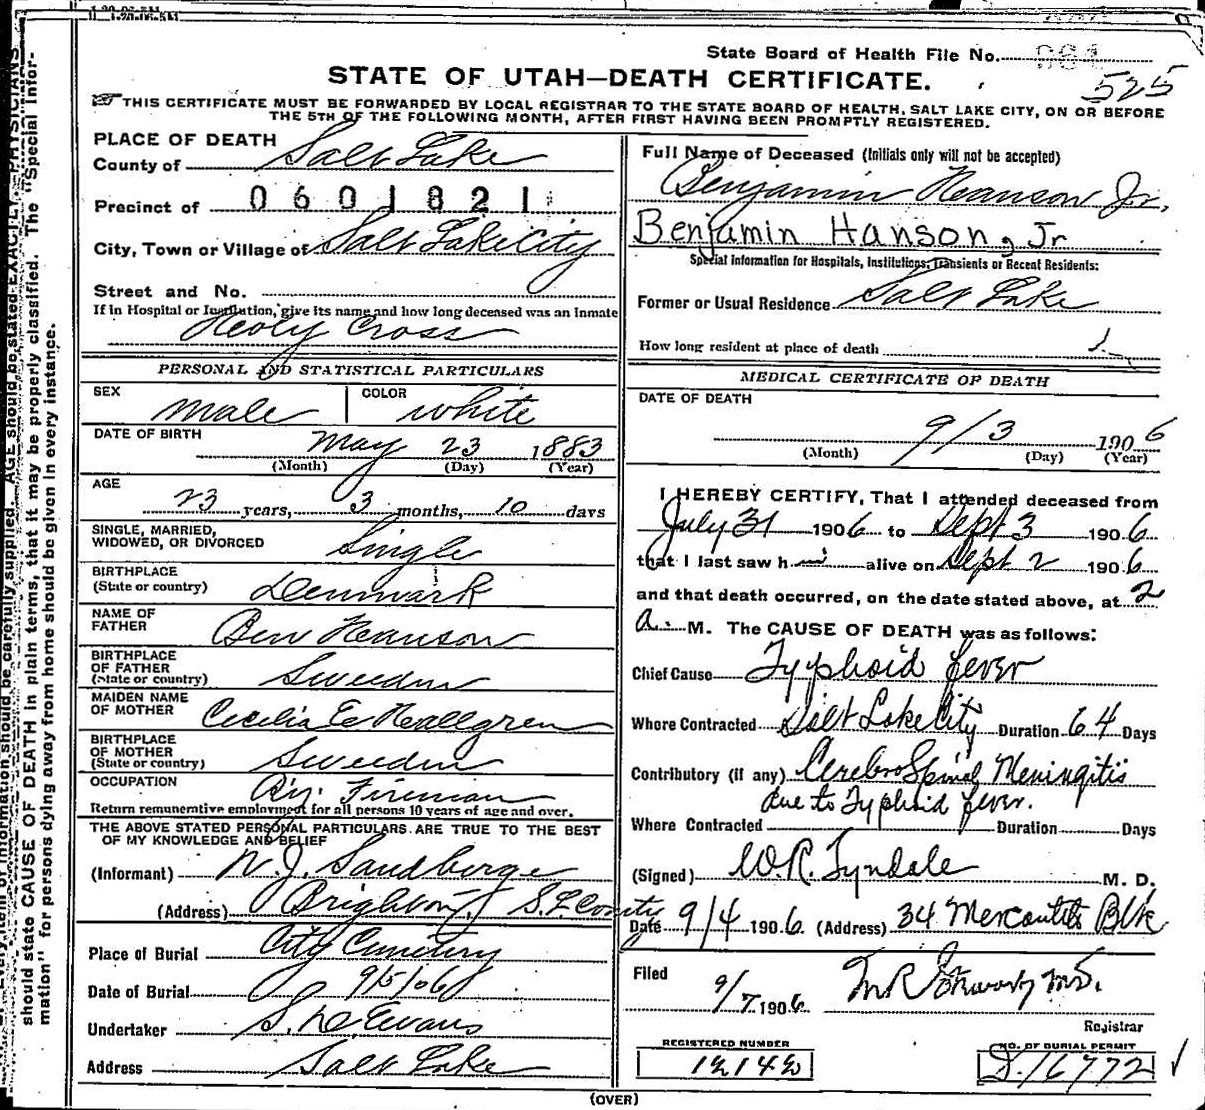 1-20-06-5M
State Board of Health File No.
525
STATE OF UTAH—DEATH CERTIFICATE.
THIS CERTIFICATE MUST BE FORWARDED BY LOCAL REGISTRAR TO THE STATE BOARD OF HEALTH, SALT LAKE CITY, ON OR BEFORE
THE 5TH OF THE FOLLOWING MONTH, AFTER FIRST HAVING BEEN PROMPTLY REGISTERED.
PLACE OF DEATH
County of Salt Lake
Precinct of 0601821
City, Town or Village of Salt Lake City
Street and No.
If in Hospital or Institution, give its name and how long deceased was an inmate
Holy Cross
PERSONAL AND STATISTICAL PARTICULARS
SEX male COLOR white
DATE OF BIRTH May 23 1883
(Month) (Day) (Year)
AGE
23 years, 3 months, 10 days
SINGLE, MARRIED,
WIDOWED, OR DIVORCED Single
BIRTHPLACE
(State or country) Denmark
NAME OF
FATHER Ben Hanson
BIRTHPLACE
OF FATHER
(State or country) Sweeden
MAIDEN NAME
OF MOTHER Cecilia E Hallgren
BIRTHPLACE
OF MOTHER
(State or country) Sweeden
OCCUPATION Ry. Fireman
Return remunerative employment for all persons 10 years of age and over.
THE ABOVE STATED PERSONAL PARTICULARS ARE TRUE TO THE BEST
OF MY KNOWLEDGE AND BELIEF
(Informant) N. J. Sandberge
(Address) Brighton, S. L. County
Place of Burial City Cemetery
Date of Burial 9/5/06
Undertaker S. D. Evans
Address Salt Lake
Full Name of Deceased (Initials only will not be accepted)
Benjamin Hanson Jr.
Benjamin Hanson, Jr
Special Information for Hospitals, Institutions, Transients or Recent Residents:
Former or Usual Residence Salt Lake
How long resident at place of death
MEDICAL CERTIFICATE OF DEATH
DATE OF DEATH
9/3 1906
(Month) (Day) (Year)
I HEREBY CERTIFY, That I attended deceased from
July 31 1906 to Sept 3 1906
that I last saw him alive on Sept 2 1906
and that death occurred, on the date stated above, at 2
A. M. The CAUSE OF DEATH was as follows:
Chief Cause Typhoid fever
Where Contracted Salt Lake City Duration 64 Days
Contributory (if any) Cerebro Spinal Meningitis
due to Typhoid fever.
Where Contracted Duration Days
(Signed) W. R. Tyndale M. D.
Date 9/4 1906. (Address) 34 Mercantile Blk
Filed
9/7 1906
Registrar
REGISTERED NUMBER
12142
NO. OF BURIAL PERMIT
D. 16772
(OVER)
should state CAUSE OF DEATH in plain terms, that it may be properly classified. The "Special Infor-
mation" for persons dying away from home should be given in every instance.